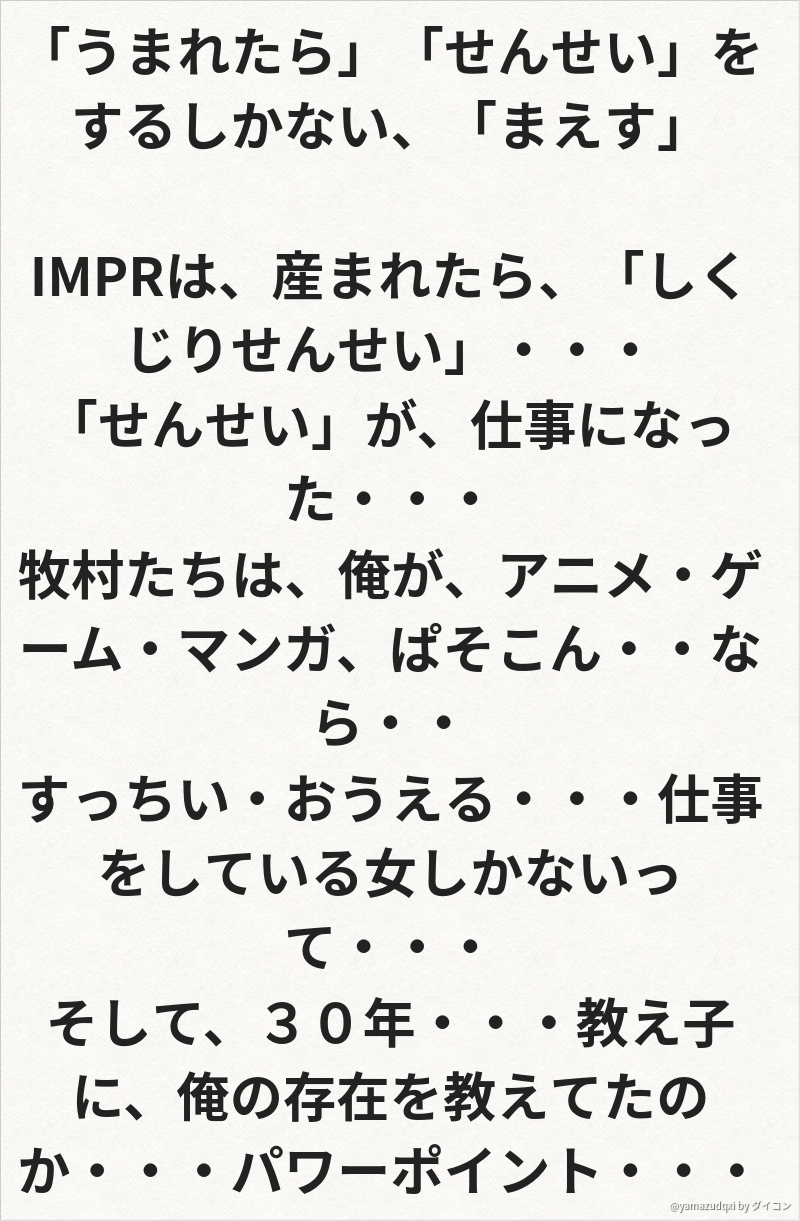 「うまれたら」「せんせい」を
するしかない、「まえす」
IMPRは、産まれたら、「しく
じりせんせい」・・・
「せんせい」が、仕事になっ
た・・・
牧村たちは、俺が、アニメ・ゲ
ーム・マンガ、ぱそこん・・な
ら・・
すっちい・おうえる・・・仕事
をしている女しかないっ
て・・・
そして、３０年・・・教え子
に、俺の存在を教えてたの
か・・・パワーポイント・・・
@yamazudqxi by ダイコン